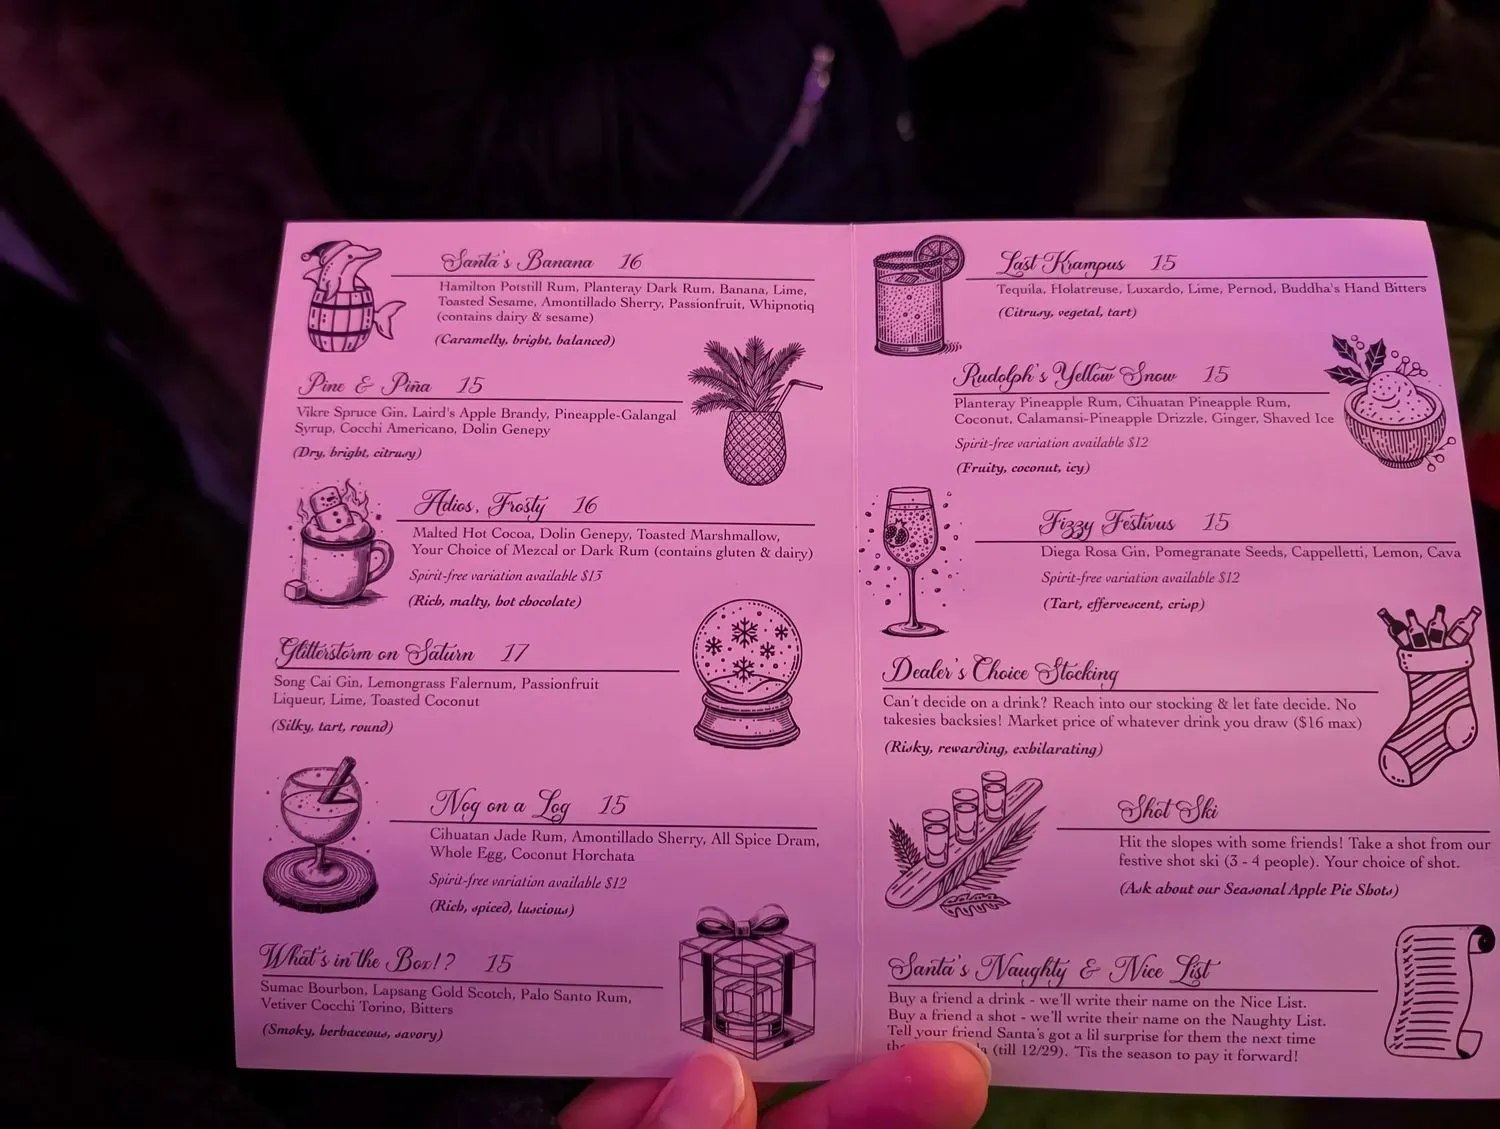 Santa's Banana 16
Hamilton Potstill Rum, Planteray Dark Rum, Banana, Lime,
Toasted Sesame, Amontillado Sherry, Passionfruit, Whipnotiq
(contains dairy & sesame)
(Caramelly, bright, balanced)
Pine & Piña 15
Vikre Spruce Gin, Laird's Apple Brandy, Pineapple-Galangal
Syrup, Cocchi Americano, Dolin Genepy
(Dry, bright, citrusy)
Adios, Frosty 16
Malted Hot Cocoa, Dolin Genepy, Toasted Marshmallow,
Your Choice of Mezcal or Dark Rum (contains gluten & dairy)
Spirit-free variation available $13
(Rich, malty, hot chocolate)
Glitterstorm on Saturn 17
Song Cai Gin, Lemongrass Falernum, Passionfruit
Liqueur, Lime, Toasted Coconut
(Silky, tart, round)
Nog on a Log 15
Cihuatan Jade Rum, Amontillado Sherry, All Spice Dram,
Whole Egg, Coconut Horchata
Spirit-free variation available $12
(Rich, spiced, luscious)
What's in the Box!? 15
Sumac Bourbon, Lapsang Gold Scotch, Palo Santo Rum,
Vetiver Cocchi Torino, Bitters
(Smoky, herbaceous, savory)
Last Krampus 15
Tequila, Holatreuse, Luxardo, Lime, Pernod, Buddha's Hand Bitters
(Citrusy, vegetal, tart)
Rudolph's Yellow Snow 15
Planteray Pineapple Rum, Cihuatan Pineapple Rum,
Coconut, Calamansi-Pineapple Drizzle, Ginger, Shaved Ice
Spirit-free variation available $12
(Fruity, coconut, icy)
Fizzy Festivus 15
Diega Rosa Gin, Pomegranate Seeds, Cappelletti, Lemon, Cava
Spirit-free variation available $12
(Tart, effervescent, crisp)
Dealer's Choice Stocking
Can't decide on a drink? Reach into our stocking & let fate decide. No
takesies backsies! Market price of whatever drink you draw ($16 max)
(Risky, rewarding, exhilarating)
Shot Ski
Hit the slopes with some friends! Take a shot from our
festive shot ski (3 - 4 people). Your choice of shot.
(Ask about our Seasonal Apple Pie Shots)
Santa's Naughty & Nice List
Buy a friend a drink - we'll write their name on the Nice List.
Buy a friend a shot - we'll write their name on the Naughty List.
Tell your friend Santa's got a lil surprise for them the next time
(till 12/29). 'Tis the season to pay it forward!